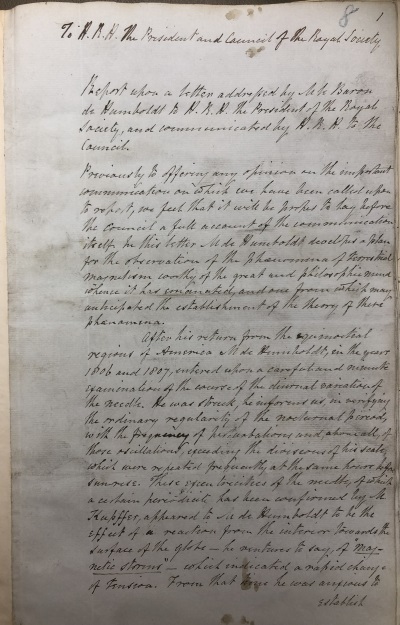 8 1
To H.R.H. The President and Council of the Royal Society
Report upon a letter addressed by M. le Baron
de Humboldt to H.R.H. the President of the Royal
Society, and communicated by H.R.H. to the
Council.
Previously to offering any opinion on the important
communication on which we have been called upon
to report, we feel that it will be proper to lay before
the Council a full account of the communication
itself. In this letter M. de Humboldt developes a plan
for the observation of the phænomena of terrestrial
magnetism worthy of the great and philosophic mind
whence it has emanated, and one from which may be
anticipated the establishment of the theory of these
phænomena.
After his return from the equinoctial
regions of America M. de Humboldt, in the years
1806 and 1807, entered upon a careful and minute
examination of the course of the diurnal variation of
the needle. He was struck, he informs us, in verifying
the ordinary regularity of the nocturnal periods
with the frequency of perturbations and above all, of
those oscillations, exceeding the divisions of his scale,
which were repeated frequently at the same hours before
sunrise. These eccentricities of the needle, of which
a certain periodicity has been confirmed by M.
Kupffer, appeared to M. de Humboldt to be the
effect of a reaction from the interior towards the
surface of the globe — he ventures to say, of "mag-
netic storms — which indicated a rapid change
of tension. From that time he was anxious to
establish